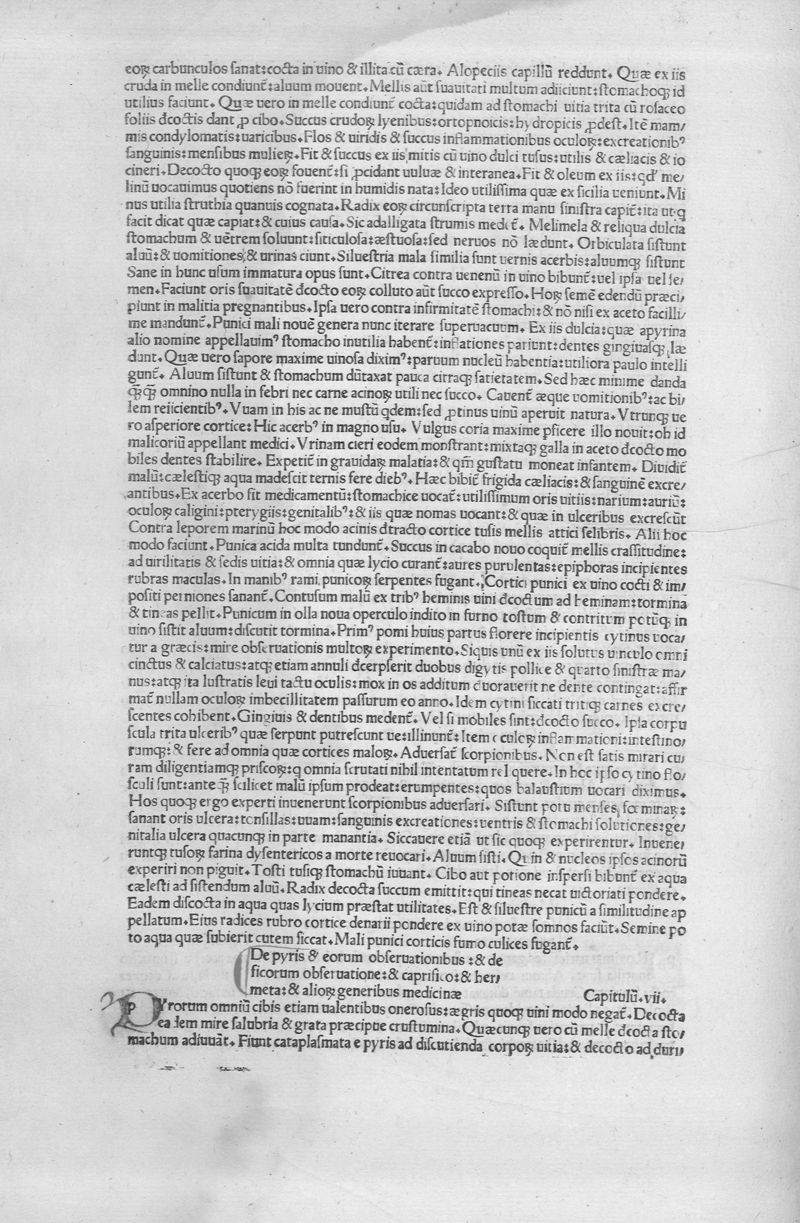 eoꝝ carbunculos ſanat:cocta in uino & illita cū cæra. Alopeciis capillū reddunt. Quæ ex iis
cruda in melle condiunt̃:aluum mouent. Mellis aūt ſuauitati multum adiiciunt:ſtomachoqꝫ id
utilius faciunt. Quæ uero in melle condiunt̃ cocta:quidam ad ſtomachi uitia trita cū roſaceo
foliis dcoctis dant ꝓ cibo. Succus crudoꝝ lyenibus:ortopnoicis:hydropicis ꝓdeſt. Itē mam/
mis condylomatis:uaricibus. Flos & uiridis & ſuccus inflammationibus oculoꝝ:excreationibꝰ
ſanguinis:menſibus mulieꝝ. Fit & ſuccus ex iis mitis cū uino dulci tuſus:utilis & cæliacis & io
cineri. Decocto quoqꝫ eoꝝ fouent̃:ſi ꝓcidant uuluæ & interanea. Fit & oleum ex iis:qd̓ me/
linū uocauimus quotiens nō fuerint in humidis nata:Ideo utiliſſima quæ ex ſicilia ueniunt. Mi
nus utilia ſtruthia quanuis cognata. Radix eoꝝ circunſcripta terra manu ſiniſtra capit̃:ita ut q
facit dicat quæ capiat:& cuius cauſa. Sic adalligata ſtrumis medet̃. Melimela & reliqua dulcia
ſtomachum & uētrem ſoluunt:ſiticuloſa:æſtuoſa:ſed neruos nō lædunt. Orbiculata ſiſtunt
aluū:& uomitiones:& urinas ciunt. Silueſtria mala ſimilia ſunt uernis acerbis:aluumqꝫ ſiſtunt
Sane in hunc uſum immatura opus ſunt. Citrea contra uenenū in uino bibunt̃:uel ipſa uel ſe/
men. Faciunt oris ſuauitatē dcocto eoꝝ colluto aūt ſucco expreſſo. Hoꝝ ſemē edendū præci/
piunt in malitia pregnantibus. Ipſa uero contra infirmitatē ſtomachi:& nō niſi ex aceto facilli/
me mandunt̃. Punici mali nouē genera nunc iterare ſuperuacuum. Ex iis dulcia:quæ apyrina
alio nomine appellauimꝰ ſtomacho inutilia habent̃:inflationes pariunt:dentes gingiuaſqꝫ læ
dunt. Quæ uero ſapore maxime uinoſa diximꝰ:paruum nucleū habentia:utiliora paulo intelli
gunt̃. Aluum ſiſtunt & ſtomachum dūtaxat pauca citraqꝫ ſatietatem. Sed hæc minime danda
omnino nulla in febri nec carne acinoꝝ utili nec ſucco. Cauent̃ æque uomitionibꝰ:ac bi/
lem reiicientibꝰ. Vuam in his ac ne muſtū qdem:ſed ꝓtinus uinū aperuit natura. Vtrunqꝫ ue
ro aſperiore cortice:Hic acerbꝰ in magno uſu. Vulgus coria maxime ꝑficere illo nouit:ob id
malicoriū appellant medici. Vrinam cieri eodem monſtrant:mixtaqꝫ galla in aceto dcocto mo
biles dentes ſtabilire. Expetit̃ in grauidaꝝ malatia:& qm̄ guſtatu moneat infantem. Diuidit̃
malū:cæleſtiqꝫ aqua madeſcit ternis fere diebꝰ. Hæc bibit̃ frigida cæliacis:& ſanguinē excre/
antibus. Ex acerbo fit medicamentū:ſtomachice uocat̃:utiliſſimum oris uitiis:narium:auriū:
oculoꝝ caligini:pterygiis:genitalibꝰ:& iis quæ nomas uocant:& quæ in ulceribus excreſcūt
Contra leporem marinū hoc modo acinis dtracto cortice tuſis mellis attici ſelibris. Alii hoc
modo faciunt. Punica acida multa tundunt̃. Succus in cacabo nouo coquit̃ mellis craſſitudine:
ad uirilitatis & ſedis uitia:& omnia quæ lycio curant̃:aures purulentas:epiphoras incipientes
rubras maculas. In manibꝰ rami punicoꝝ ſerpentes fugant. Cortici punici ex uino cocti & im/
poſiti perniones ſanant̃. Contuſum malū ex tribꝰ heminis uini dcoctum ad heminam:tormina
& tineas pellit. Punicum in olla noua operculo indito in furno toſtum & contritum potūqꝫ in
uino ſiſtit aluum:diſcutit tormina. Primꝰ pomi huius partus florere incipientis cytinus uoca/
tur a græcis:mire obſeruationis multoꝝ experimento. Siquis unū ex iis ſolutus uinculo omni
cinctus & calciatus:atqꝫ etiam annuli dcerpſerit duobus digytis pollice & quarto ſiniſtræ ma/
nus:atqꝫ ita luſtratis leui tactu oculis:mox in os additum duorauerit ne dente contingat:affir
mat̃ nullam oculoꝝ imbecillitatem paſſurum eo anno. Idem cytini ſiccati tritiqꝫ carnes excre/
ſcentes cohibent. Gingiuis & dentibus medent̃. Vel ſi mobiles ſint:dcocto ſucco. Ipſa corpu
ſcula trita ulceribꝰ quæ ſerpunt putreſcunt ue:illinunt̃:Item oculoꝝ inflammationi:inteſtino/
rumqꝫ:& fere ad omnia quæ cortices maloꝝ. Aduerſant̃ ſcorpionibus. Non eſt ſatis mirari cu/
ram diligentiamqꝫ priſcoꝝ:q omnia ſcrutati nihil intentatum relquere. In hoc ipſo cytino flo/
ſculi ſunt:ante ꝗ̃ ſcilicet malū ipſum prodeat:erumpentes:quos balauſtium uocari diximus.
Hos quoqꝫ ergo experti inuenerunt ſcorpionibus aduerſari. Siſtunt potu menſes fœminaꝝ:
ſanant oris ulcera:tonſillas:uuam:ſanguinis excreationes:uentris & ſtomachi ſolutiones:ge/
nitalia ulcera quacunqꝫ in parte manantia. Siccauere etiā ut ſic quoqꝫ experirentur. Inuene/
runtqꝫ tuſoꝝ farina dyſentericos a morte reuocari. Aluum ſiſti. Quin & nucleos ipſos acinorū
experiri non piguit. Toſti tuſiqꝫ ſtomachū iuuant. Cibo aut potione inſperſi bibunt̃ ex aqua
cæleſti ad ſiſtendum aluū. Radix decocta ſuccum emittit:qui tineas necat uictoriati pondere.
Eadem diſcocta in aqua quas lycium præſtat utilitates. Eſt & ſilueſtre punicū a ſimilitudine ap
pellatum. Eius radices rubro cortice denarii pondere ex uino potæ ſomnos faciūt. Semine po
to aqua quæ ſubierit cutem ſiccat. Mali punici corticis fumo culices fugant̃.
De pyris & eorum obſeruationibus:& de
ficorum obſeruatione:& caprifico:& her/
meta:& alioꝝ generibus medicinæ Capitulū.vii.
Pyrorum omniū cibis etiam ualentibus oneroſus:ægris quoqꝫ uini modo negat̃. Decocta
eadem mire ſalubria & grata præcipue cruſtumina. Quæcunqꝫ uero cū melle dcocta ſto/
machum adiuuāt. Fiunt cataplaſmata e pyris ad diſcutienda corpoꝝ uitia:& decocto ad duri/